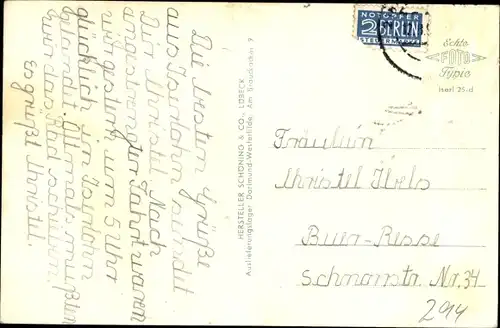 Die besten Grüße
aus Iserlohn sendet
Dir Christel. Nach
angestrengter Fahrt waren
wir gestern um 5 Uhr
glücklich in Iserlohn
gelandet. Oftmals mußten
wir das Rad schieben.
Es grüßt Christel.
HERSTELLER SCHÖNING & CO., LÜBECK
Auslieferungslager Dortmund-Westerfilde, Am Trauckacker 3
NOTOPFER
2 BERLIN
STEUERMARKE
Echte
FOTO
Typie
Iserl 25-d
Fräulein
Christel Ibels
Buer-Resse
Nr. 34
294